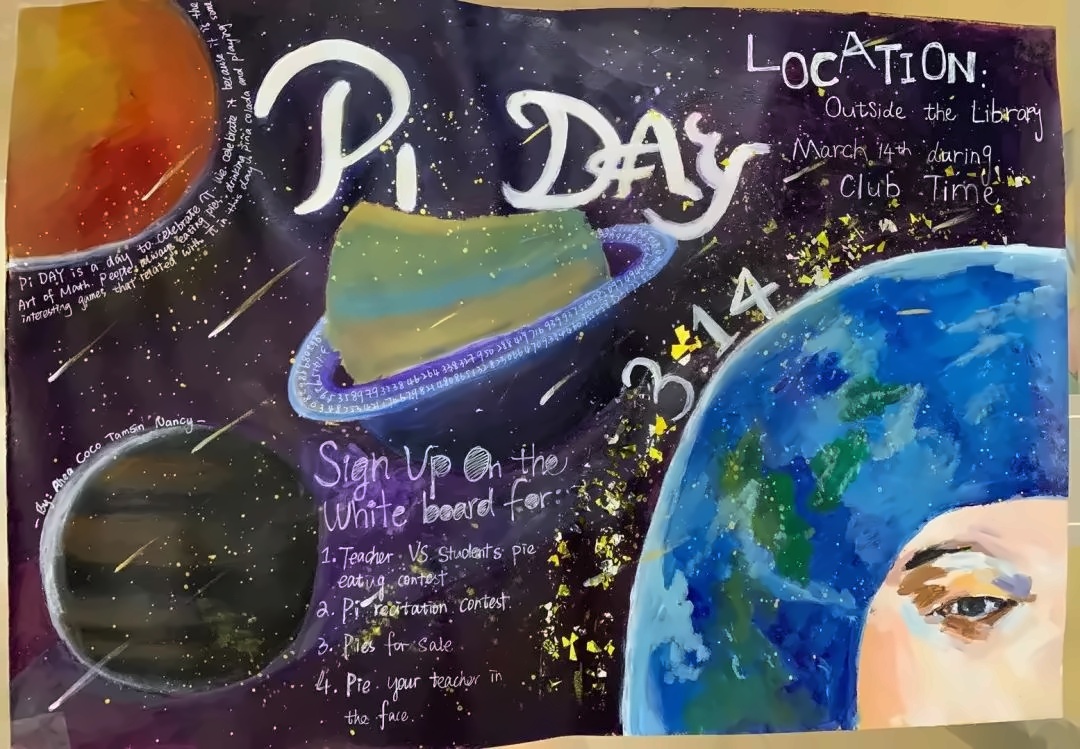 Pi DAY
LOCATION:
Outside the Library
March 14th during
Club Time
Pi DAY is a day to celebrate π. We celebrate it because it is the
Art of Math. People always eating pies, drinking piña colada and playing some
interesting games that related with π in this day.
3.14
- By: Rhea Coco Tamsin Nancy -
Sign Up On the
White board for:
1. Teacher VS Student's pie
eating contest
2. Pi recitation contest
3. Pies for sale
4. Pie your teacher in
the face.